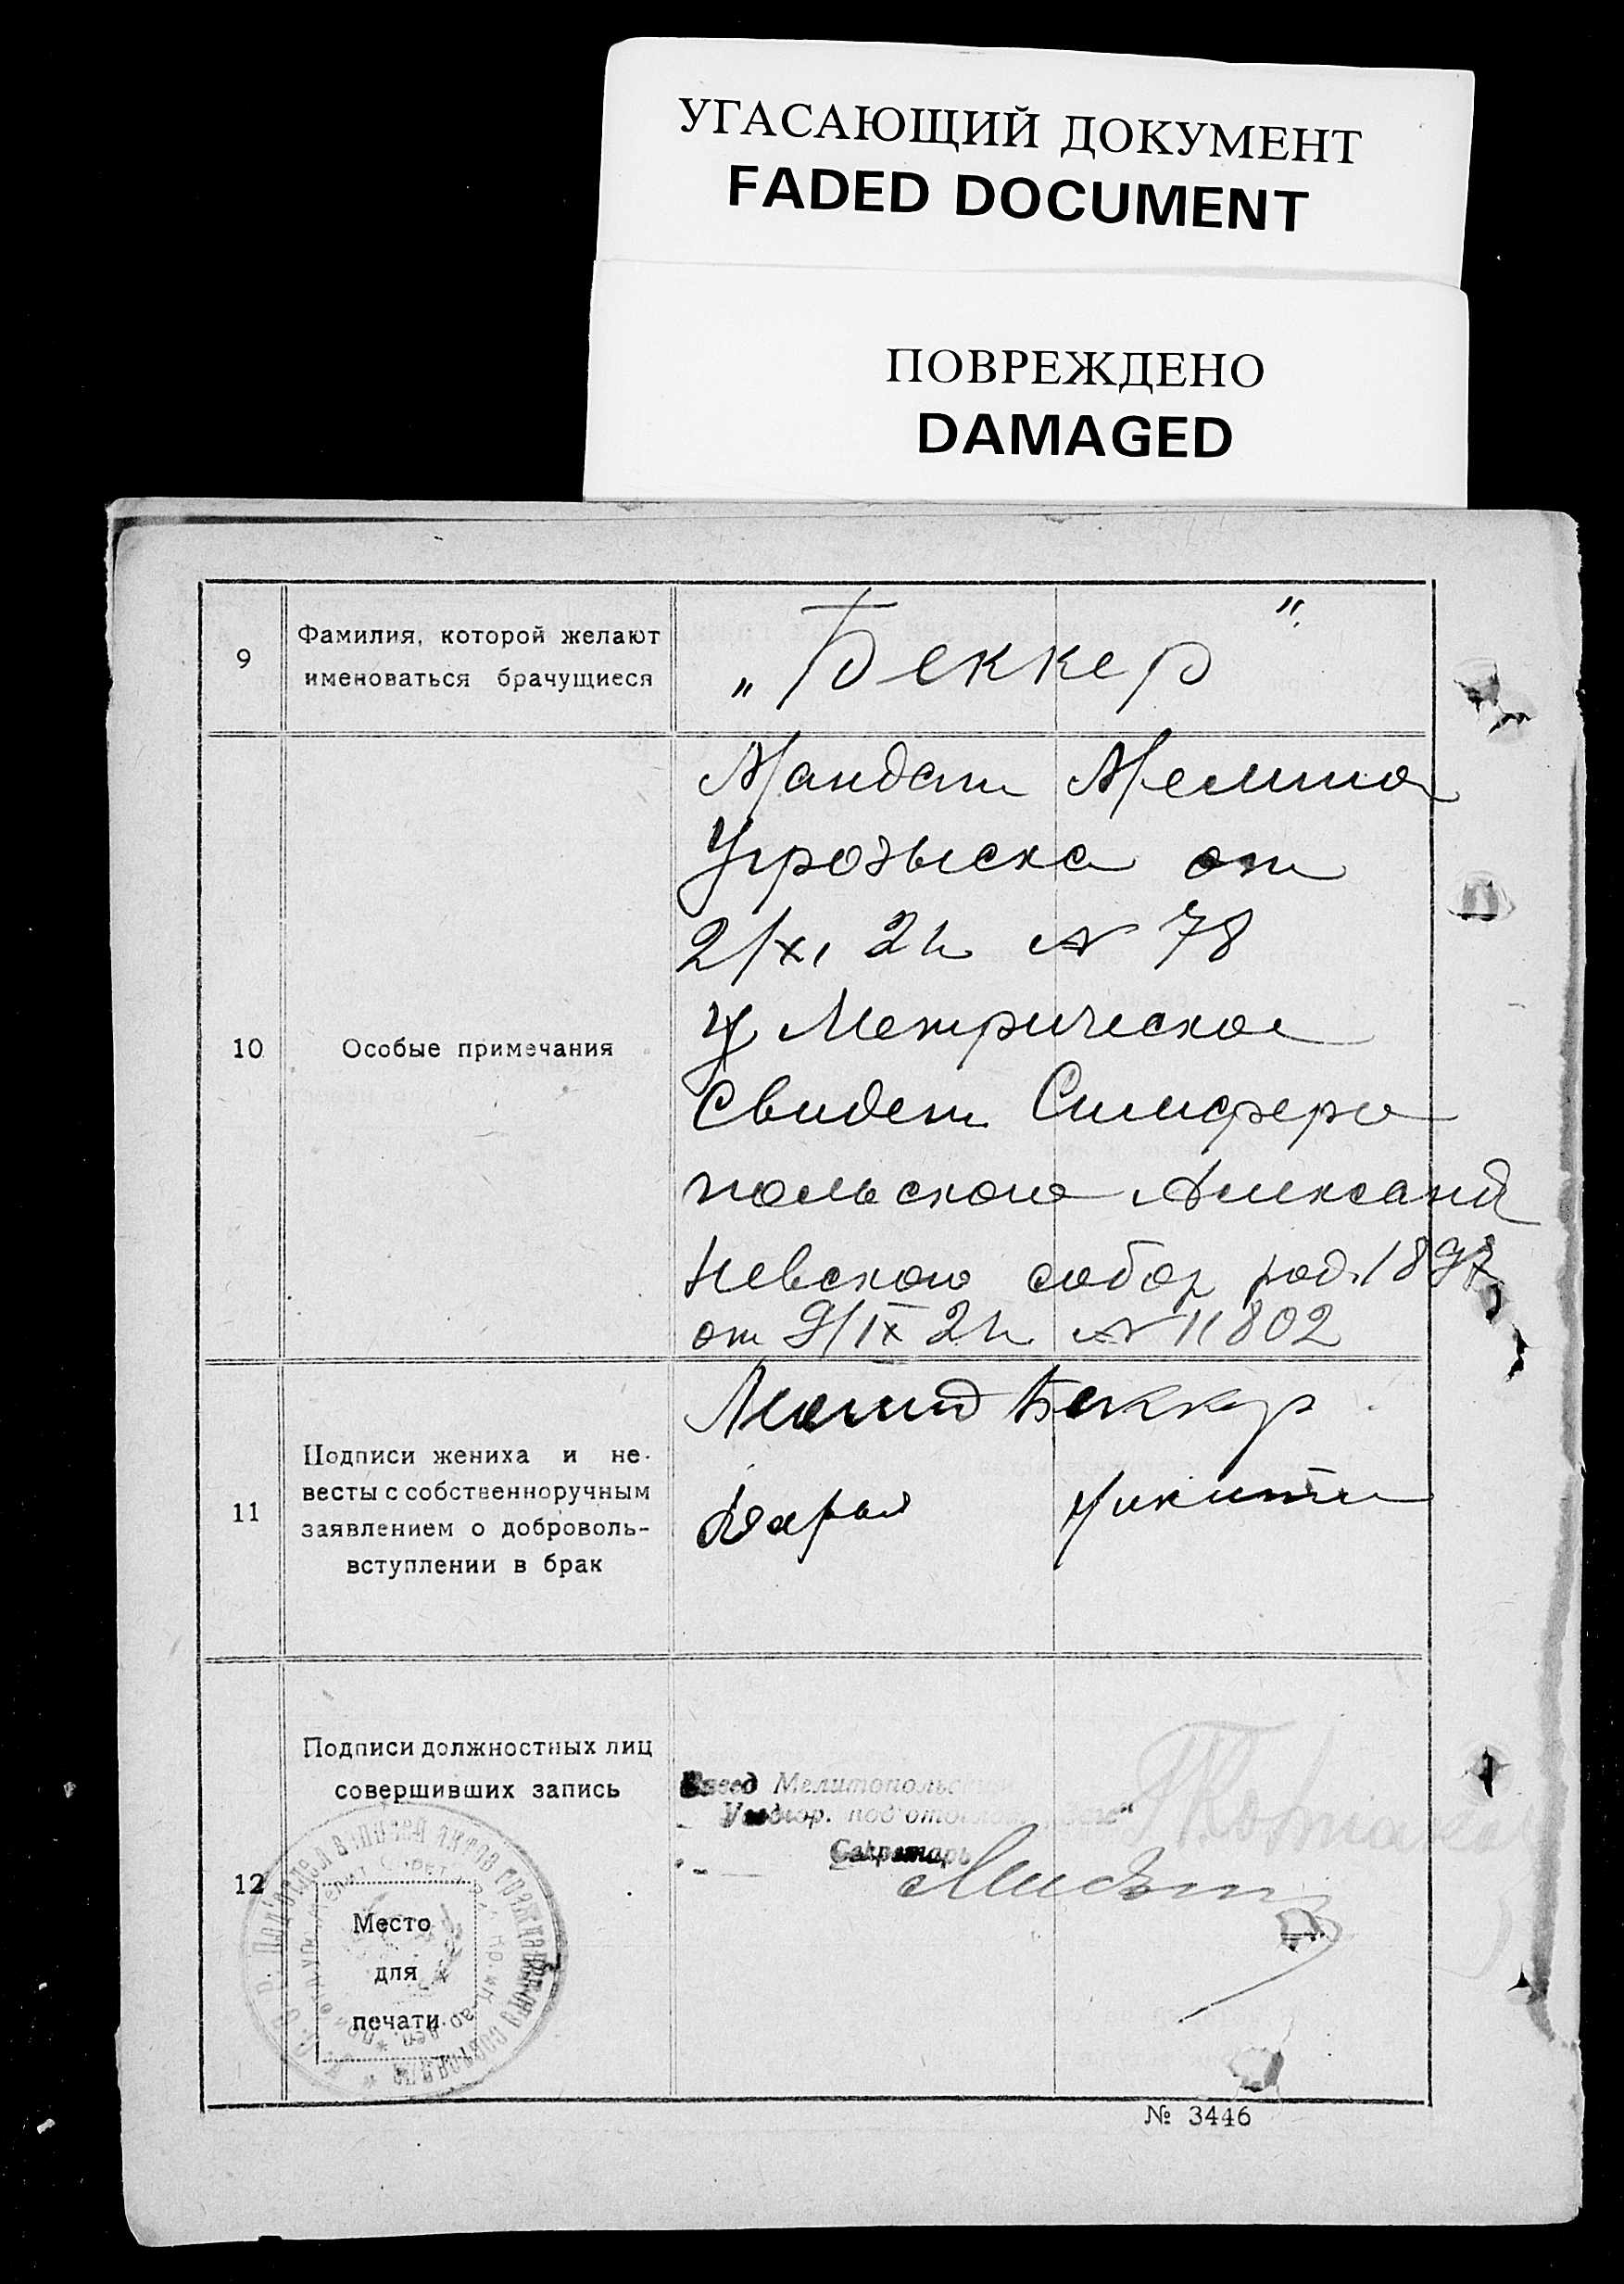 УГАСАЮЩИЙ ДОКУМЕНТ
FADED DOCUMENT
ПОВРЕЖДЕНО
DAMAGED
9
Фамилия, которой желают
именоваться брачущиеся
„Беккер"
10
Особые примечания
Мандат Мелит
Угрозыска от
2/XI 21 № 78
Метрическое
Свидет Симферо
польского Александ
Невского собор род. 1897
от 9/IX 21 № 11802
11
Подписи жениха и не-
весты с собственноручным
заявлением о доброволь-
вступлении в брак
Леонид Беккер
Дарья
12
Подписи должностных лиц
совершивших запись
Завед Мелитопольск
под'отд
Секретарь
Место
для
печати
№ 3446